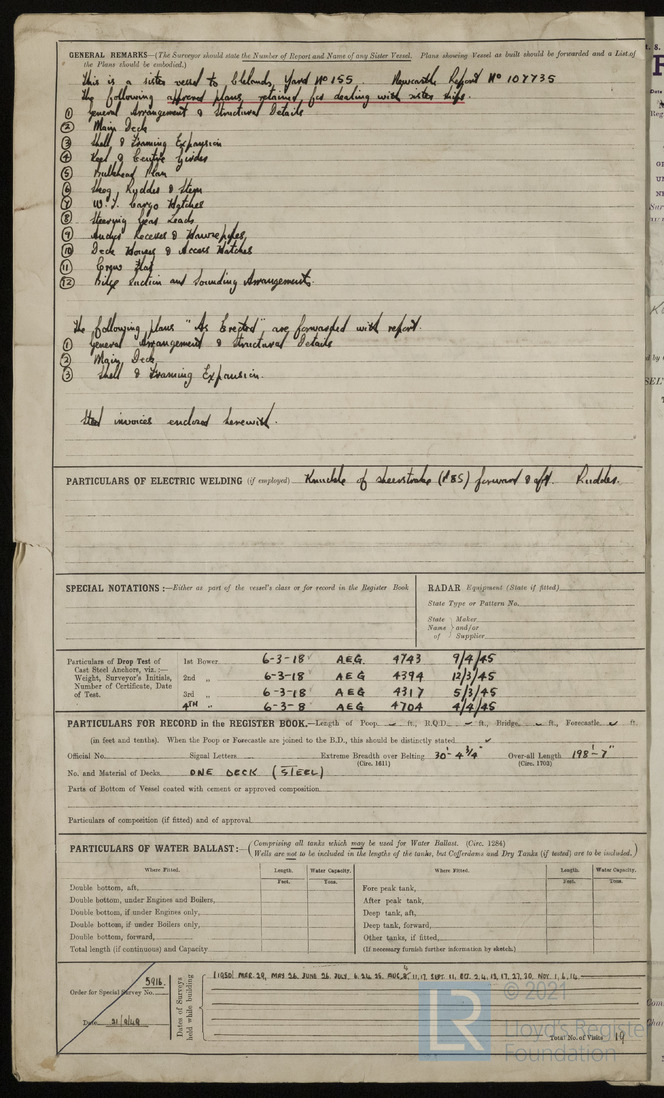 GENERAL REMARKS—(The Surveyor should state the Number of Report and Name of any Sister Vessel. Plans showing Vessel as built should be forwarded and a List of
the Plans should be embodied.)
This is a sister vessel to Clelands, Yard No 155 Newcastle Report No 107735
The following approved plans, retained, for dealing with sister ships.
① General Arrangement & Structural Details
② Main Deck
③ Shell & Framing Expansion
④ Keel & Centre Girder
⑤ Bulkhead Plan
⑥ Skeg, Rudder & Stem
⑦ W.T. Cargo Hatches
⑧ Steering Gear Leads
⑨ Anchor Recesses & Hawsepipes
⑩ Deck Houses & Access Hatches
⑪ Crews Flat
⑫ Bilge Suction and Sounding Arrangements.
The following plans "As Erected" are forwarded with report.
① General Arrangement & Structural Details
② Main Deck
③ Shell & Framing Expansion.
Steel invoices enclosed herewith.
PARTICULARS OF ELECTRIC WELDING (if employed) Knuckle of sheerstrake (P&S) forward & aft. Rudder.
SPECIAL NOTATIONS:—Either as part of the vessel's class or for record in the Register Book
RADAR Equipment (State if fitted)
State Type or Pattern No.
State Name of Maker and/or Supplier
Particulars of Drop Test of Cast Steel Anchors, viz.:— Weight, Surveyor's Initials, Number of Certificate, Date of Test.
1st Bower. 6-3-18 AEG. 4743 9/4/45
2nd „ 6-3-18 AEG 4394 12/3/45
3rd „ 6-3-18 AEG 4317 5/3/45
4TH „ 6-3-8 AEG 4704 4/4/45
PARTICULARS FOR RECORD in the REGISTER BOOK.—Length of Poop ft., R.Q.D. ft., Bridge ft., Forecastle ft.
(in feet and tenths). When the Poop or Forecastle are joined to the B.D., this should be distinctly stated
Official No. Signal Letters Extreme Breadth over Belting 30'-4 3/4" Over-all Length 198'-7"
(Circ. 1611) (Circ. 1703)
No. and Material of Decks ONE DECK (STEEL)
Parts of Bottom of Vessel coated with cement or approved composition
Particulars of composition (if fitted) and of approval
PARTICULARS OF WATER BALLAST:—(Comprising all tanks which may be used for Water Ballast. (Circ. 1284)
Wells are not to be included in the lengths of the tanks, but Cofferdams and Dry Tanks (if tested) are to be included.)
Where Fitted. Length. Water Capacity. Where Fitted. Length. Water Capacity.
Feet. Tons. Feet. Tons.
Double bottom, aft, Fore peak tank,
Double bottom, under Engines and Boilers, After peak tank,
Double bottom, if under Engines only, Deep tank, aft,
Double bottom, if under Boilers only, Deep tank, forward,
Double bottom, forward, Other tanks, if fitted,
Total length (if continuous) and Capacity (If necessary furnish further information by sketch.)
Order for Special Survey No. 5916.
Date 21/9/49
Dates of Surveys held while building
(1950) MAR. 29, MAY 26. JUNE 26. JULY. 6. 24. 25. AUG. 4 8. 11. 17. SEPT. 11. OCT. 2. 4. 13. 17. 27. 30. NOV. 1. 6. 14
Total No. of Visits 19
LR
© 2021
Lloyd's Register
Foundation